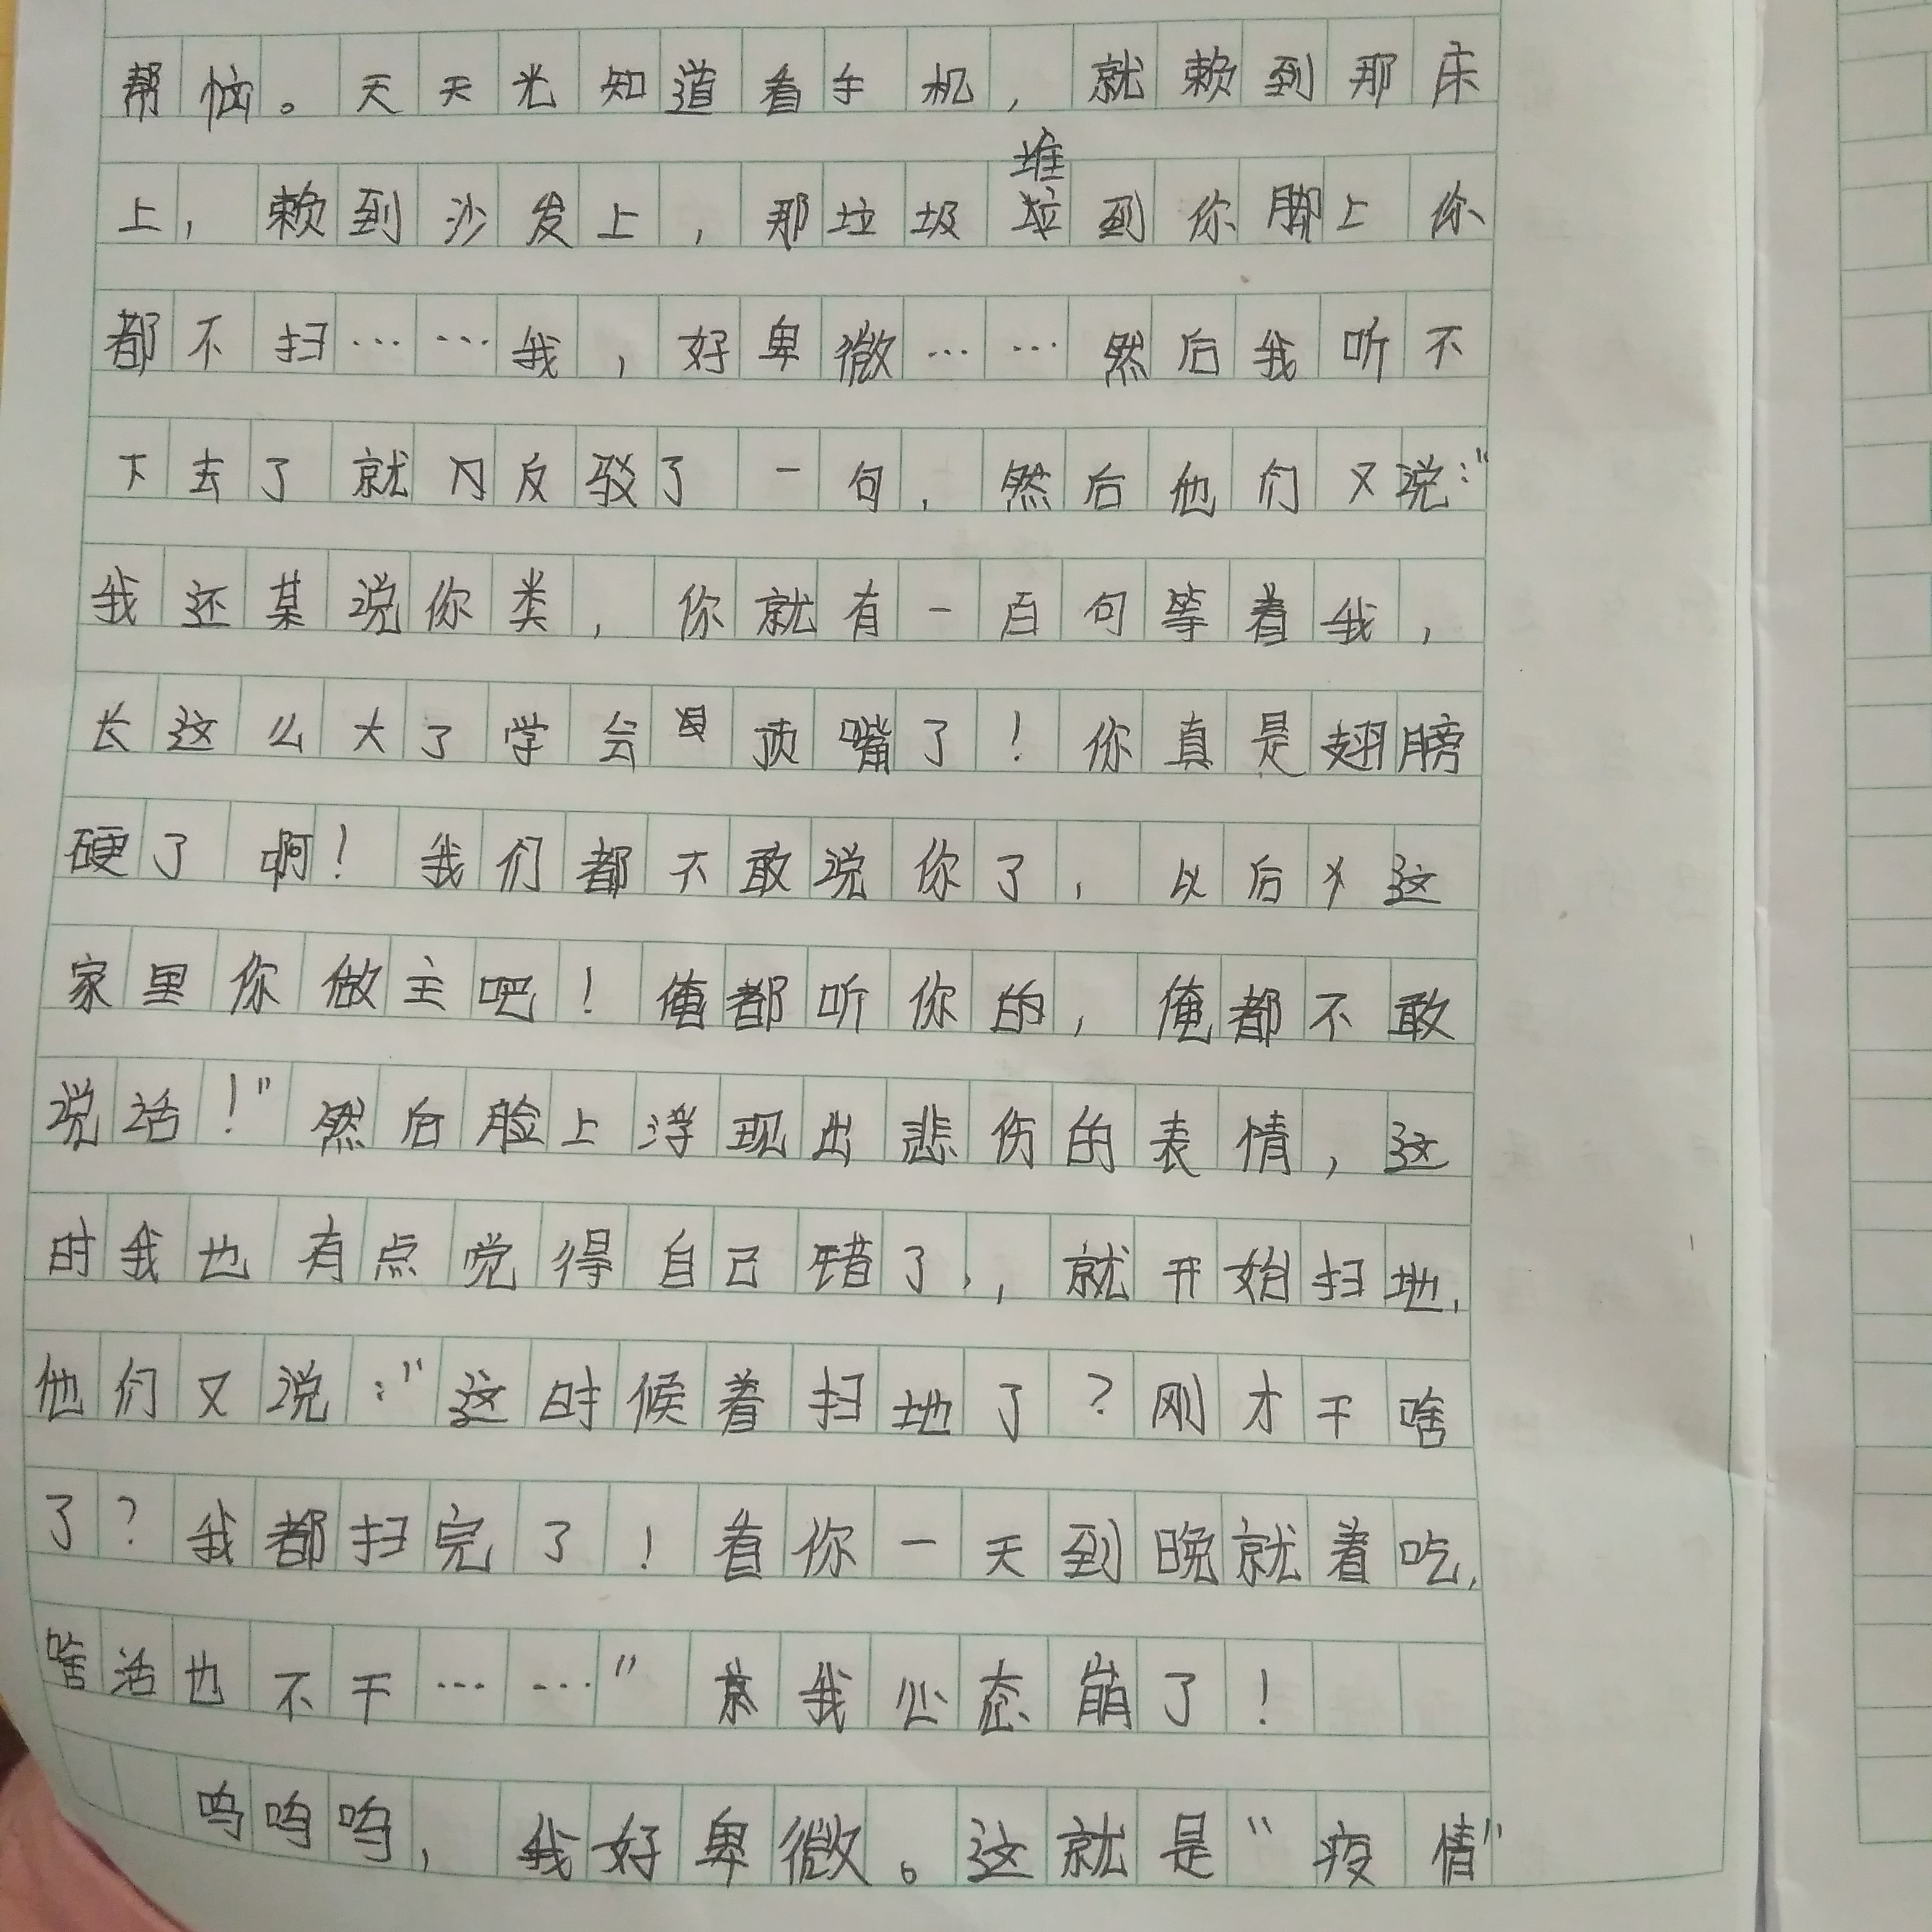 帮忙。天天光知道看手机，就赖到那床
堆
上，赖到沙发上，那垃圾到你脚上你
都不扫……我，好卑微……然后我听不
下去了就反驳了一句，然后他们又说："
我还某说你类，你就有一百句等着我，
长这么大了学会顶嘴了！你真是翅膀
硬了啊！我们都不敢说你了，以后这
家里你做主吧！俺都听你的，俺都不敢
说话！"然后脸上浮现出悲伤的表情，这
时我也有点觉得自己错了，，就开始扫地，
他们又说："这时候着扫地了？刚才干啥
了？我都扫完了！看你一天到晚就着吃，
啥活也不干……"我心态崩了！
呜呜呜，我好卑微。这就是“疫情”